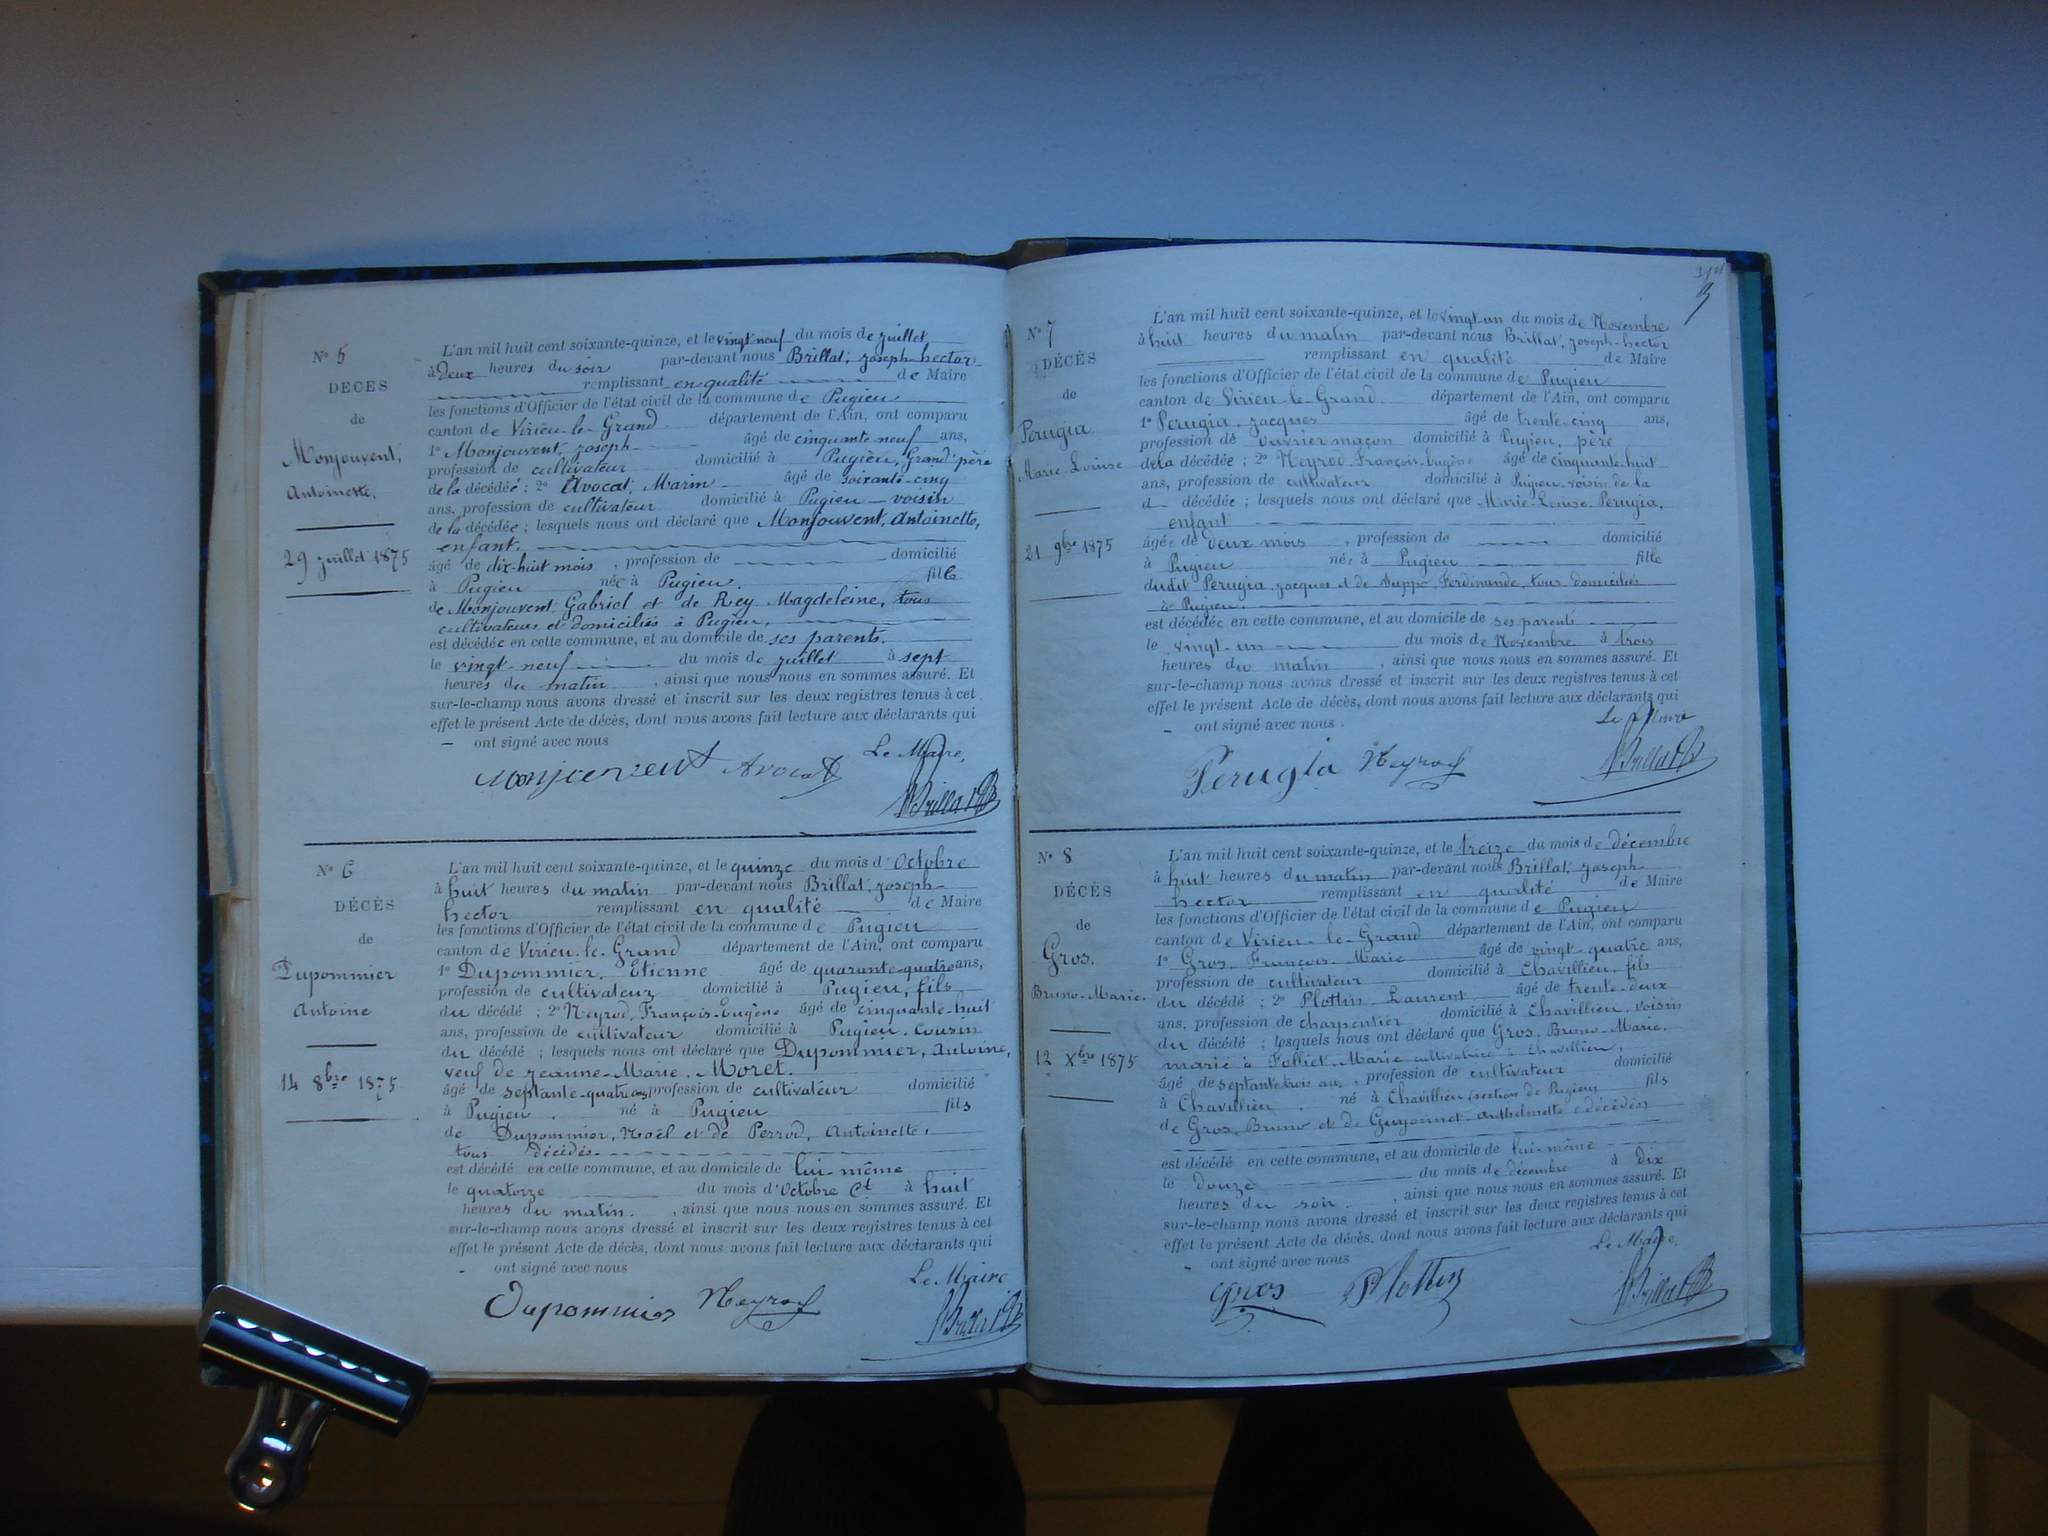 N° 5
DÉCÈS
de
Monjouvent,
Antoinette,
29 juillet 1875
L'an mil huit cent soixante-quinze, et le vingt neuf du mois de juillet
à Deux heures du soir par-devant nous Brillat, joseph-hector
remplissant en qualité de Maire
les fonctions d'Officier de l'état civil de la commune de Pugieu
canton de Virieu-le-Grand département de l'Ain, ont comparu
1° Monjouvent, joseph âgé de cinquante neuf ans,
profession de cultivateur domicilié à Pugieu, Grand'père
de la décédée ; 2° Avocat, Marin âgé de soixante-cinq
ans, profession de cultivateur domicilié à Pugieu - voisin
de la décédée ; lesquels nous ont déclaré que Monjouvent, Antoinette,
enfant.
âgé de dix-huit mois , profession de domicilié
à Pugieu née à Pugieu fille
de Monjouvent, Gabriel et de Rey Magdeleine, tous
cultivateurs et domiciliés à Pugieu,
est décédée en cette commune, et au domicile de ses parents.
le vingt-neuf du mois de juillet à sept
heures du matin , ainsi que nous nous en sommes assuré. Et
sur-le-champ nous avons dressé et inscrit sur les deux registres tenus à cet
effet le présent Acte de décès, dont nous avons fait lecture aux déclarants qui
ont signé avec nous
Le Maire,
Monjouvent Avocat
Brillat
N° 6
DÉCÈS
de
Dupommier
Antoine
14 8bre 1875
L'an mil huit cent soixante-quinze, et le quinze du mois d'Octobre
à huit heures du matin par-devant nous Brillat, joseph-
hector remplissant en qualité de Maire
les fonctions d'Officier de l'état civil de la commune de Pugieu
canton de Virieu-le-Grand département de l'Ain, ont comparu
1° Dupommier, Etienne âgé de quarante-quatre ans,
profession de cultivateur domicilié à Pugieu, fils
du décédé ; 2° Neyrod, François-Eugène âgé de cinquante-huit
ans, profession de cultivateur domicilié à Pugieu. Cousin
du décédé ; lesquels nous ont déclaré que Dupommier, Antoine,
veuf de jeanne-Marie. Moret.
âgé de septante-quatre ans profession de cultivateur domicilié
à Pugieu . né à Pugieu fils
de Dupommier, Noël et de Perrod, Antoinette,
tous décédés
est décédé en cette commune, et au domicile de lui-même
le quatorze du mois d'Octobre Ct à huit
heures du matin. , ainsi que nous nous en sommes assuré. Et
sur-le-champ nous avons dressé et inscrit sur les deux registres tenus à cet
effet le présent Acte de décès, dont nous avons fait lecture aux déclarants qui
ont signé avec nous
Le Maire
Dupommier Neyrod
Brillat
N° 7
DÉCÈS
de
Perugia.
Marie-Louise
21 9bre 1875
L'an mil huit cent soixante-quinze, et le vingt-un du mois de Novembre
à huit heures du matin par-devant nous Brillat, joseph-hector
remplissant en qualité de Maire
les fonctions d'Officier de l'état civil de la commune de Pugieu
canton de Virieu-le-Grand. département de l'Ain, ont comparu
1° Perugia, jacques âgé de trente-cinq ans,
profession de ouvrier maçon domicilié à Pugieu, père
de la décédée ; 2° Neyrod, François-Eugène âgé de cinquante-huit
ans, profession de cultivateur domicilié à Pugieu. voisin de la
d décédée ; lesquels nous ont déclaré que Marie-Louise-Perugia,
enfant
âgée de deux mois , profession de domicilié
à Pugieu née à Pugieu fille
dudit Perugia, jacques et de Suppo Ferdinande, tous domiciliés
à Pugieu.
est décédée en cette commune, et au domicile de ses parents
le vingt-un du mois de Novembre à trois
heures du matin , ainsi que nous nous en sommes assuré. Et
sur-le-champ nous avons dressé et inscrit sur les deux registres tenus à cet
effet le présent Acte de décès, dont nous avons fait lecture aux déclarants qui
ont signé avec nous .
Le Maire
Perugia Neyrod
Brillat
N° 8
DÉCÈS
de
Gros.
Bruno-Marie.
12 Xbre 1875
L'an mil huit cent soixante-quinze, et le treize du mois de décembre
à huit heures du matin par-devant nous Brillat, joseph-
hector remplissant en qualité de Maire
les fonctions d'Officier de l'état civil de la commune de Pugieu
canton de Virieu-le-Grand département de l'Ain, ont comparu
1° Gros, François-Marie âgé de vingt-quatre ans,
profession de cultivateur domicilié à Chavillieu, fils
du décédé ; 2° Plottin, Laurent âgé de trente-deux
ans, profession de charpentier domicilié à Chavillieu, voisin
du décédé ; lesquels nous ont déclaré que Gros, Bruno-Marie.
marié à Folliet, Marie cultivatrice à Chavillieu.
âgé de septante-trois ans, profession de cultivateur domicilié
à Chavillieu . né à Chavillieu, section de Pugieu fils
de Gros, Bruno et de Guyonnet Anthelmette décédés
est décédé en cette commune, et au domicile de lui-même
le douze du mois de décembre à dix
heures du soir. , ainsi que nous nous en sommes assuré. Et
sur-le-champ nous avons dressé et inscrit sur les deux registres tenus à cet
effet le présent Acte de décès, dont nous avons fait lecture aux déclarants qui
ont signé avec nous
Le Maire.
Gros Plottin
Brillat